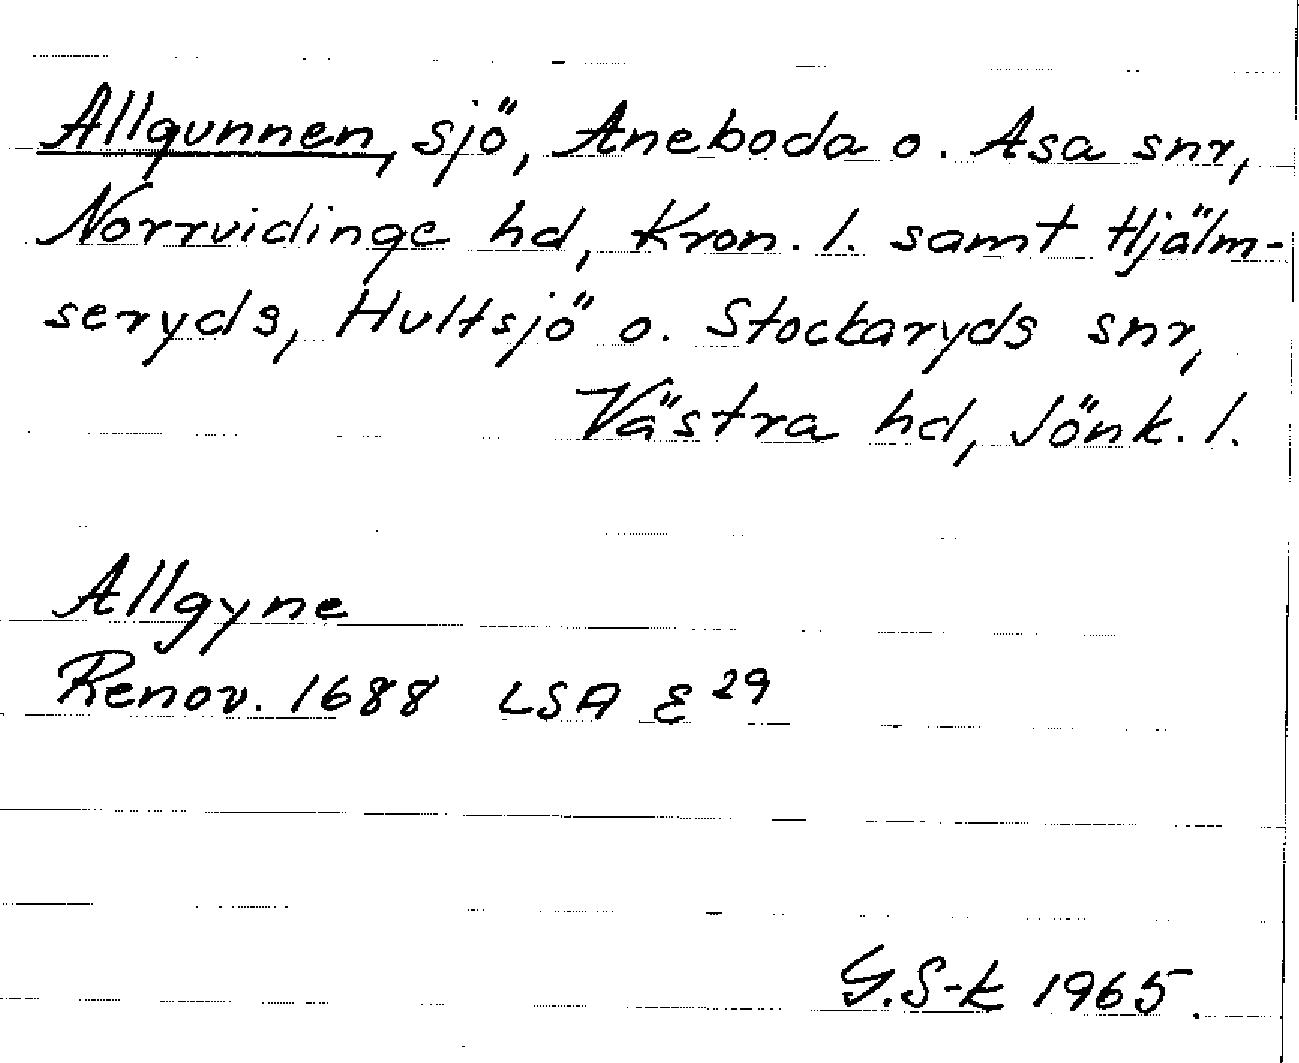 Allgunnen, sjö, Aneboda o. Asa snr,
Norrvidinge hd, Kron. l. samt Hjälm-
seryds, Hultsjö o. Stockaryds snr,
Västra hd, Jönk. l.
Allgyne
Renov. 1688 LSA E 29
G.S-k 1965.